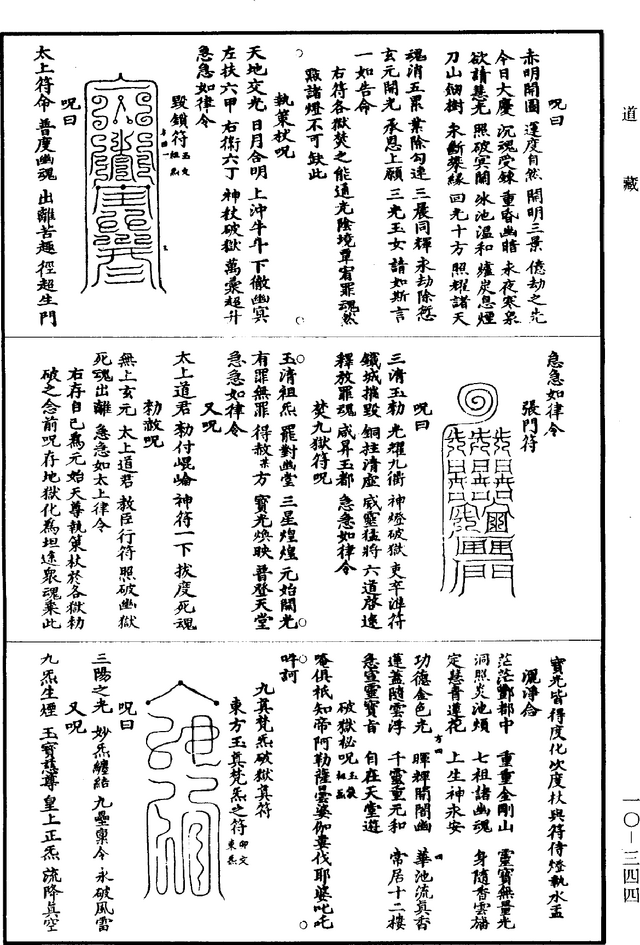 道藏
呪曰
赤明開圖 運度自然 開明三景 億劫之先
今日大慶 沉魂受鍊 重昏幽暗 永夜寒泉
欲請慧光 照破冥關 冰池溫和 爐炭息煙
刀山劒樹 永斷業緣 回光十方 照耀諸天
魂消五累 業除勾連 三晨同輝 永劫除愆
玄元開光 承恩上願 三光玉女 請如斯言
一如告命
右符各獄焚之能通光陰境單宥罪魂然
點諸燈不可缺此
執策杖呪
天地交光 日月合明 上沖牛斗 下徹幽冥
左扶六甲 右衛六丁 神杖破獄 萬彙超升
急急如律令
毀鎖符
呪曰
太上符命 普度幽魂 出離苦趣 徑超生門
急急如律令
張門符
呪曰
三清玉勑 光耀九衢 神燈破獄 吏卒准符
鐵城摧毀 銅柱清虛 威靈猛將 六道啓途
釋放罪魂 咸昇玉都 急急如律令
焚九獄符呪
玉清祖炁 罷對幽堂 三星煌煌 元始開光
有罪無罪 得赦十方 寶光煥映 普登天堂
急急如律令
又呪
太上道君 勑付崐崘 神符一下 拔度死魂
勑赦呪
無上玄元 太上道君 教臣行符 照破幽獄
死魂出離 急急如太上律令
右存自己爲元始天尊執策杖於各獄勑
破之念前呪存地獄化爲坦途衆魂乘此
寶光皆得度化次度杖與符侍燈執水盂
灑淨合
茫茫酆都中 重重金剛山 靈寶無量光
洞照炎池煩 七祖諸幽魂 身隨香雲旛
定慧青蓮花 上生神永安
功德金色光 暉暉開闇幽 華池流真香
蓮蓋隨雲浮 千靈重元和 常居十二樓
急宣靈寶旨 自在天堂遊
破獄秘呪
唵俱袛知帝阿勒薩曇婆伽婁伐耶婆吒吒
吽訶
九真梵炁破獄真符
東方玉真梵炁之符
呪曰
三陽之光 妙炁纏結 九壘稟令 永破風雷
又呪
九炁生煙 玉寶慧尊 皇上正炁 流降真空
一〇—三四四